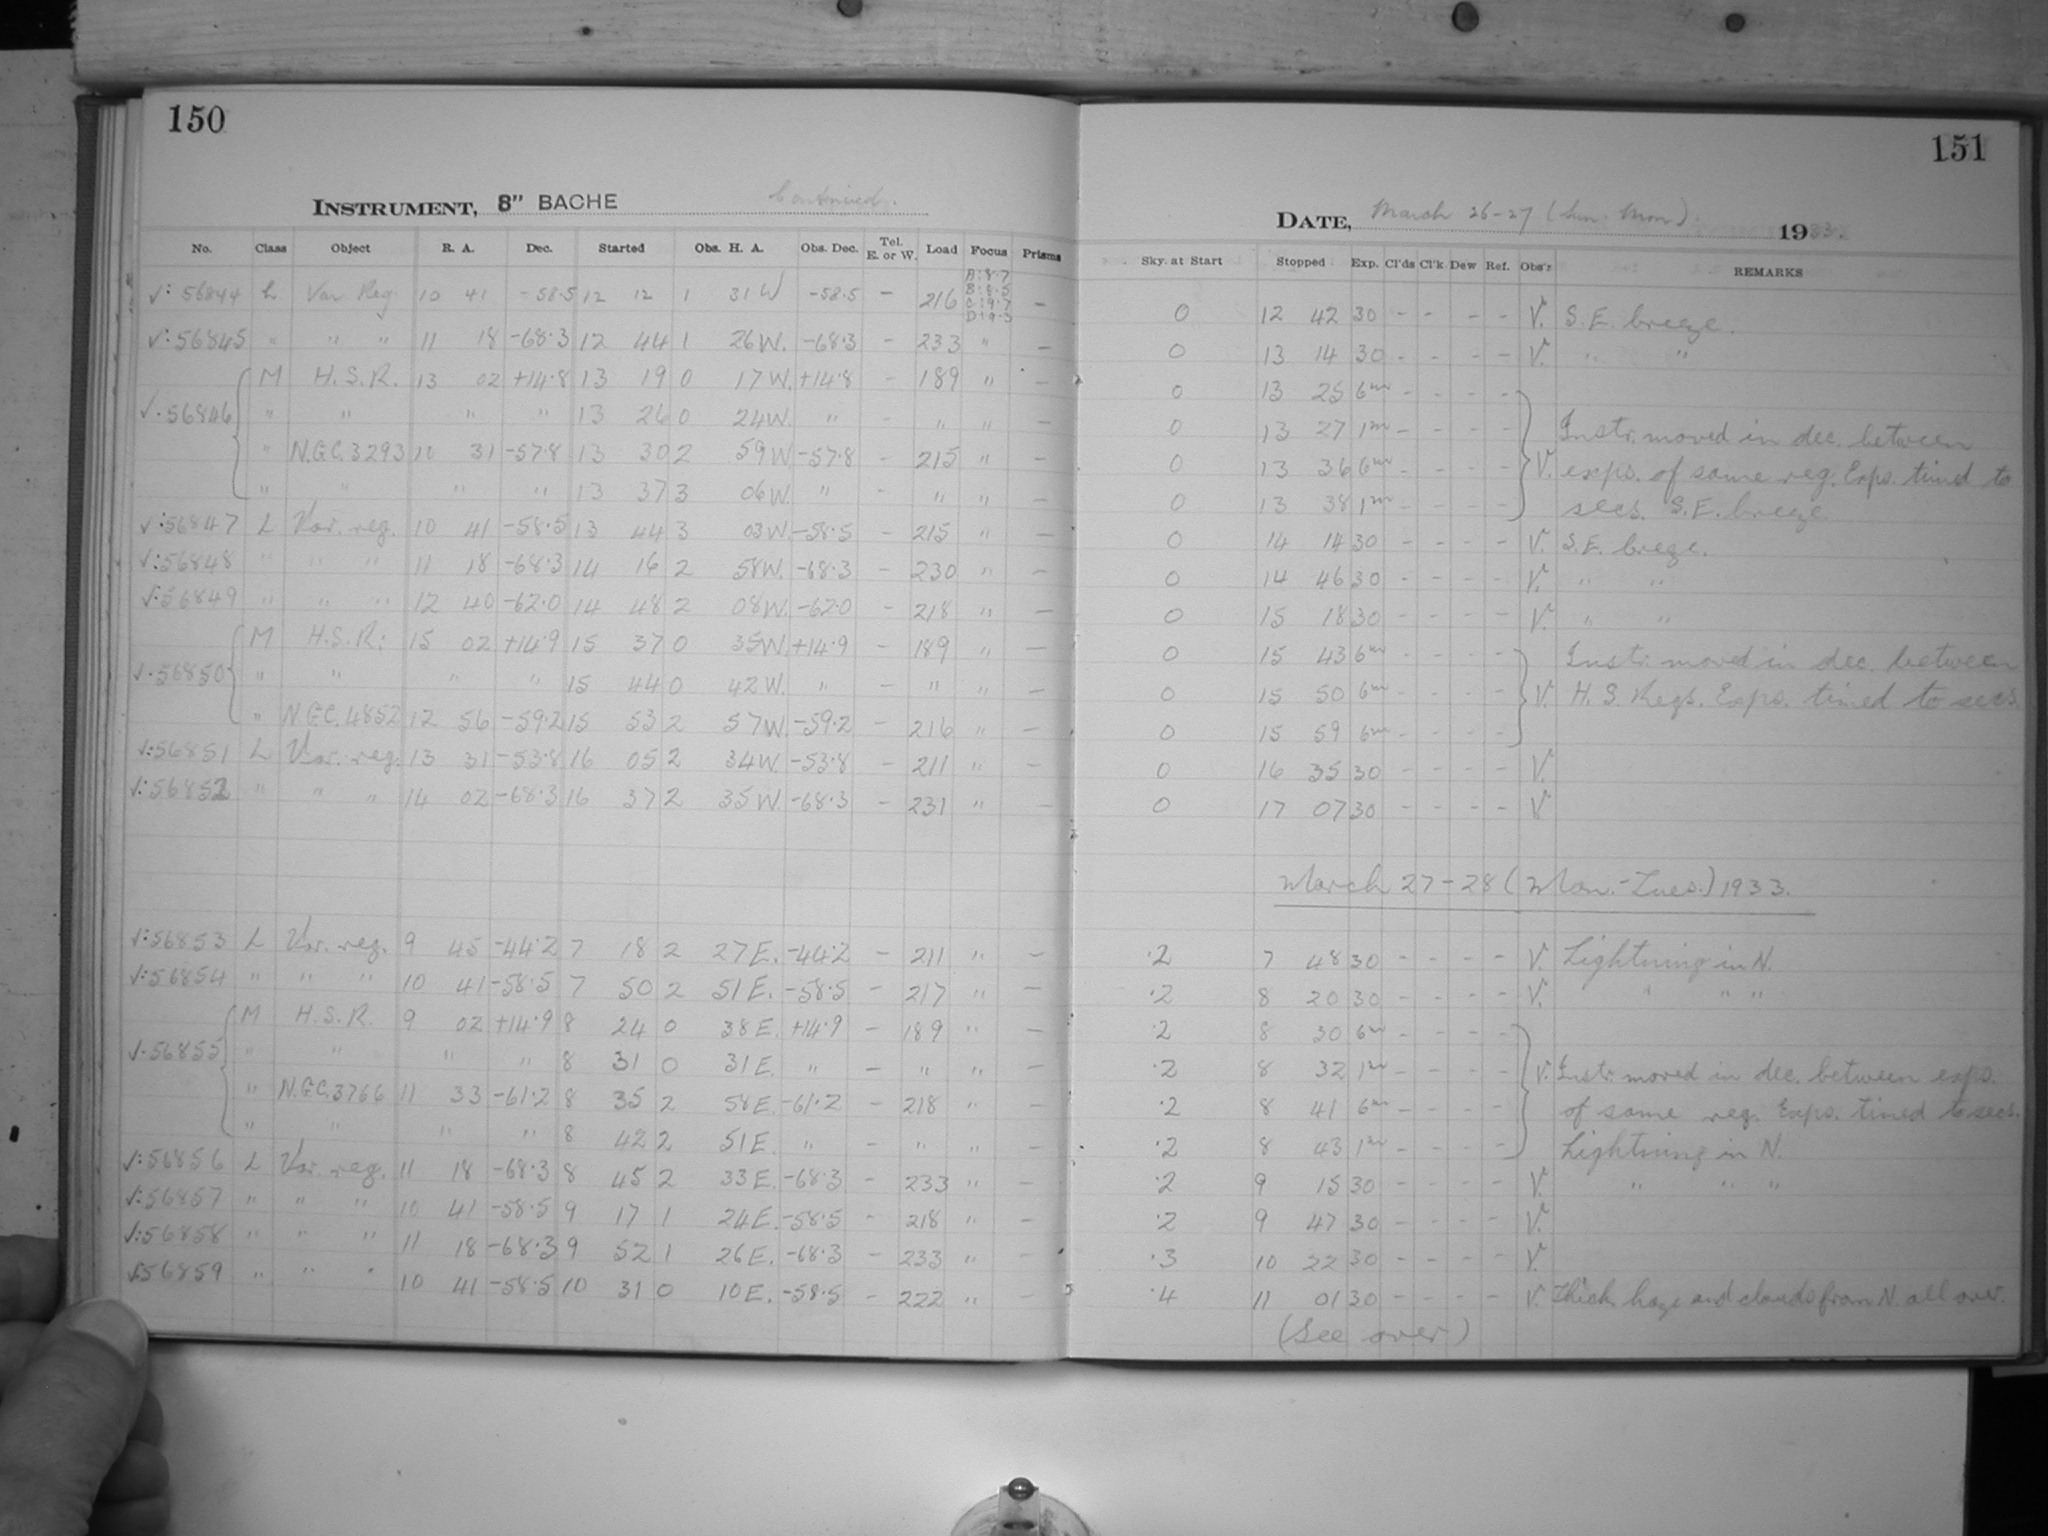 150
INSTRUMENT, 8" BACHE Continued.
No. Class Object R. A. Dec. Started Obs. H. A. Obs. Dec. Tel. E. or W. Load Focus Prisms
√: 56844 L Var Reg 10 41 -58.5 12 12 1 31 W -58.5 - 216 A:8.7 B:8.5 C:9.7 D:9.3 -
√:56845 " " " 11 18 -68.3 12 44 1 26 W. -68.3 - 233 " -
M H.S.R. 13 02 +14.8 13 19 0 17 W. +14.8 - 189 " -
√.56846 " " " " 13 26 0 24 W. " - " " -
" N.G.C. 3293 10 31 -57.8 13 30 2 59 W -57.8 - 215 " -
" " " " 13 37 3 06 W. " - " " -
√:56847 L Var. reg. 10 41 -58.5 13 44 3 03 W. -58.5 - 215 " -
√:56848 " " " 11 18 -68.3 14 16 2 58 W. -68.3 - 230 " -
√:56849 " " " 12 40 -62.0 14 48 2 08 W. -62.0 - 218 " -
M H.S.R. 15 02 +14.9 15 37 0 35 W. +14.9 - 189 " -
√.56850 " " " " 15 44 0 42 W. " - " " -
" N.G.C. 4852 12 56 -59.2 15 53 2 57 W. -59.2 - 216 " -
√:56851 L Var. reg. 13 31 -53.8 16 05 2 34 W. -53.8 - 211 " -
√:56852 " " " 14 02 -68.3 16 37 2 35 W. -68.3 - 231 " -
√:56853 L Var. reg. 9 45 -44.2 7 18 2 27 E. -44.2 - 211 " -
√:56854 " " " 10 41 -58.5 7 50 2 51 E. -58.5 - 217 " -
M H.S.R. 9 02 +14.9 8 24 0 38 E. +14.9 - 189 " -
√.56855 " " " " 8 31 0 31 E. " - " " -
" N.G.C. 3766 11 33 -61.2 8 35 2 58 E. -61.2 - 218 " -
" " " " 8 42 2 51 E. " - " " -
√:56856 L Var. reg. 11 18 -68.3 8 45 2 33 E. -68.3 - 233 " -
√:56857 " " " 10 41 -58.5 9 17 1 24 E. -58.5 - 218 " -
√:56858 " " " 11 18 -68.3 9 52 1 26 E. -68.3 - 233 " -
√:56859 " " " 10 41 -58.5 10 31 0 10 E. -58.5 - 222 " -
151
DATE, March 26-27 (Sun. Mon). 1933.
Sky. at Start Stopped Exp. Cl'ds Cl'k Dew Ref. Obs'r REMARKS
0 12 42 30 - - - - V. S.E. breeze.
0 13 14 30 - - - - V. " "
0 13 25 6m - - - -
0 13 27 1m - - - - Instr. moved in dec. between
0 13 36 6m - - - - V. exps. of same reg. Exps. timed to
0 13 38 1m - - - - secs. S.E. breeze.
0 14 14 30 - - - - V. S.E. breeze.
0 14 46 30 - - - - V. " "
0 15 18 30 - - - - V. " "
0 15 43 6m - - - - Instr. moved in dec. between
0 15 50 6m - - - - V. H.S. Regs. Exps. timed to secs
0 15 59 6m - - - -
0 16 35 30 - - - - V.
0 17 07 30 - - - - V.
March 27-28 (Mon.-Tues.) 1933.
.2 7 48 30 - - - - V. Lightning in N.
.2 8 20 30 - - - - V. " " "
.2 8 30 6m - - - -
.2 8 32 1m - - - - V. Instr. moved in dec. between exps.
.2 8 41 6m - - - - of same reg. Exps. timed to secs.
.2 8 43 1m - - - - Lightning in N.
.2 9 15 30 - - - - V. " " "
.2 9 47 30 - - - - V.
.3 10 22 30 - - - - V.
.4 11 01 30 - - - - V. Thick haze and clouds from N. all over.
(See over)